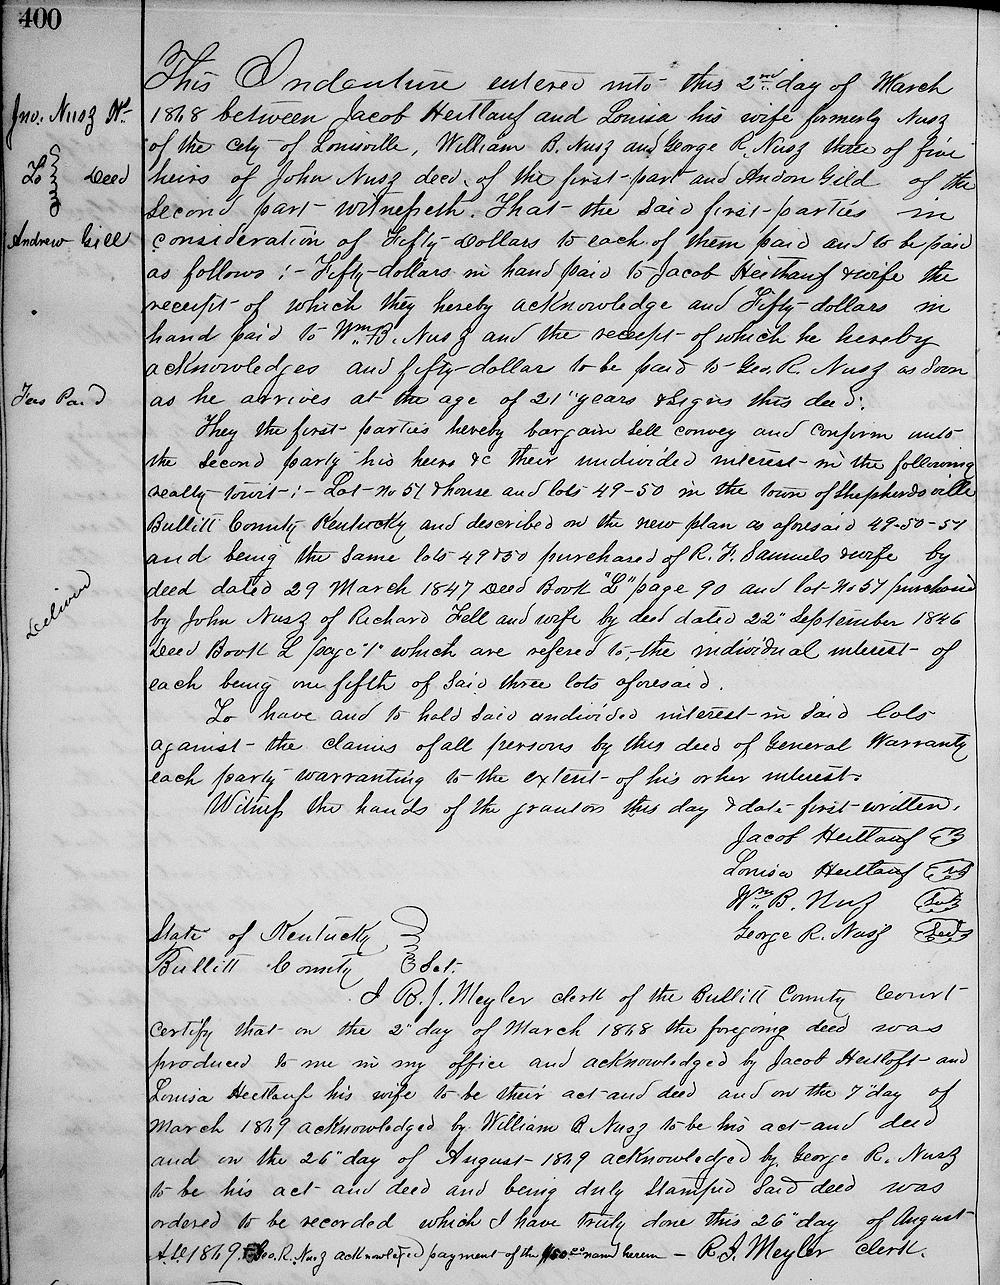 400
Jno. Nusz Hs
To Deed
Andrew Gill
Fees Paid
Delivered
This Indenture entered into this 2nd day of March
1868 between Jacob Heitlauf and Louisa his wife formerly Nusz
of the city of Louisville, William B. Nusz and George R. Nusz three of five
heirs of John Nusz decd. of the first part and Andon Gild of the
Second part Witnesseth. That the said first parties in
consideration of Fifty Dollars to each of them paid and to be paid
as follows :- Fifty dollars in hand paid to Jacob Heitlauf & wife the
receipt of which they hereby acknowledge and Fifty dollars in
hand paid to Wm. B. Nusz and the receipt of which he hereby
acknowledges and fifty dollar to be paid to Geo. R. Nusz as soon
as he arrives at the age of 21" years & signs this deed.
They the first parties hereby bargain sell convey and confirm unto
the second party his heirs &c their undivided interest in the following
realty towit :- Lot no 51 & house and lots 49-50 in the town of Shepherdsville
Bullitt County Kentucky and described on the new plan as aforesaid 49-50-51
and being the same lots 49 & 50 purchased of R. F. Samuels & wife by
deed dated 29 March 1847 Deed Book "L" page 90 and lot No 51 purchased
by John Nusz of Richard Fell and wife by deed dated 22" September 1846
Deed Book L page "1" which are refered to, the individual interest of
each being one fifth of said three lots aforesaid.
To have and to hold said undivided interest in said lots
against the claims of all persons by this deed of General Warranty
each party warranting to the extent of his or her interest.
Witness the hands of the grantors this day & date first written.
Jacob Heitlauf
Louisa Heitlauf
Wm. B. Nusz Seal
George R. Nusz Seal
State of Kentucky
Bullitt County Sct.
I R. J. Meyler clerk of the Bullitt County Court
certify that on the 2" day of March 1868 the foregoing deed was
produced to me in my office and acknowledged by Jacob Heitloft and
Louisa Heitlauf his wife to be their act and deed and on the 7" day of
March 1869 acknowledged by William B Nusz to be his act and deed
and on the 26" day of August 1869 acknowledged by George R. Nusz
to be his act and deed and being duly stamped said deed was
ordered to be recorded which I have truly done this 26" day of August
A.D. 1869. Geo. R. Nusz acknowleged payment of the $50.00 named herein - R. J. Meyler clerk.